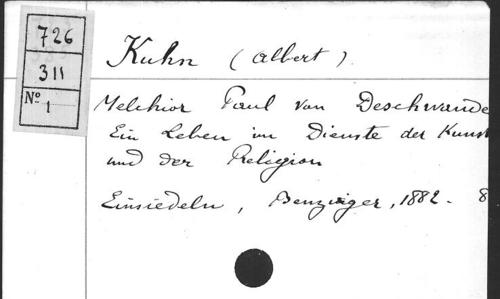 726
311
Nº 1
Kuhn (Albert).
Melchior Paul von Deschwande
Ein Leben im Dienste der Kunst
und der Religion
Einsiedeln, Benziger, 1882. 8